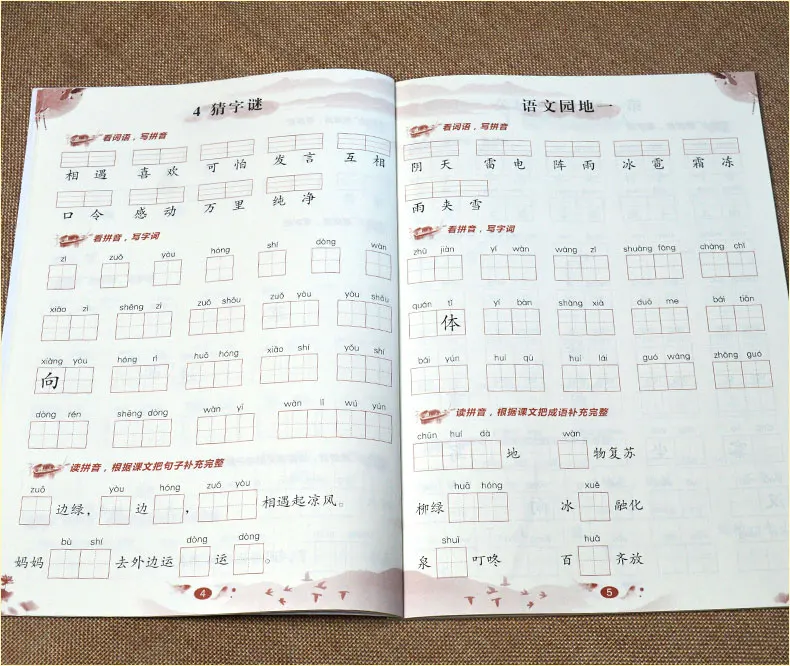 4 猜字谜
看词语，写拼音
相 遇 喜 欢 可 怕 发 言 互 相
口 令 感 动 万 里 纯 净
看拼音，写字词
zì zuǒ yòu hóng shí dòng wàn
xiǎo zì shēng zì zuǒ shǒu zuǒ yòu yòu shǒu
xiàng yòu hóng rì huǒ hóng xiǎo shí yóu shí
向
dòng rén shēng dòng wàn yī wàn lǐ wú yún
读拼音，根据课文把句子补充完整
zuǒ yòu hóng zuǒ yòu
边绿， 边 ， 相遇起凉风。
bù shí dòng dòng
妈妈 去外边运 运 。
4
语文园地一
看词语，写拼音
阴 天 雷 电 阵 雨 冰 雹 霜 冻
雨 夹 雪
看拼音，写字词
zhú jiàn yí wàn wáng zǐ shuāng fāng chàng chī
quán tǐ yí bàn shàng xià duō me bái tiān
体
bái yún huí qù huí lái guó wáng zhōng guó
读拼音，根据课文把成语补充完整
chūn huí dà wàn
地 物复苏
huā hóng xuě
柳绿 冰 融化
shuǐ huā
泉 叮咚 百 齐放
5